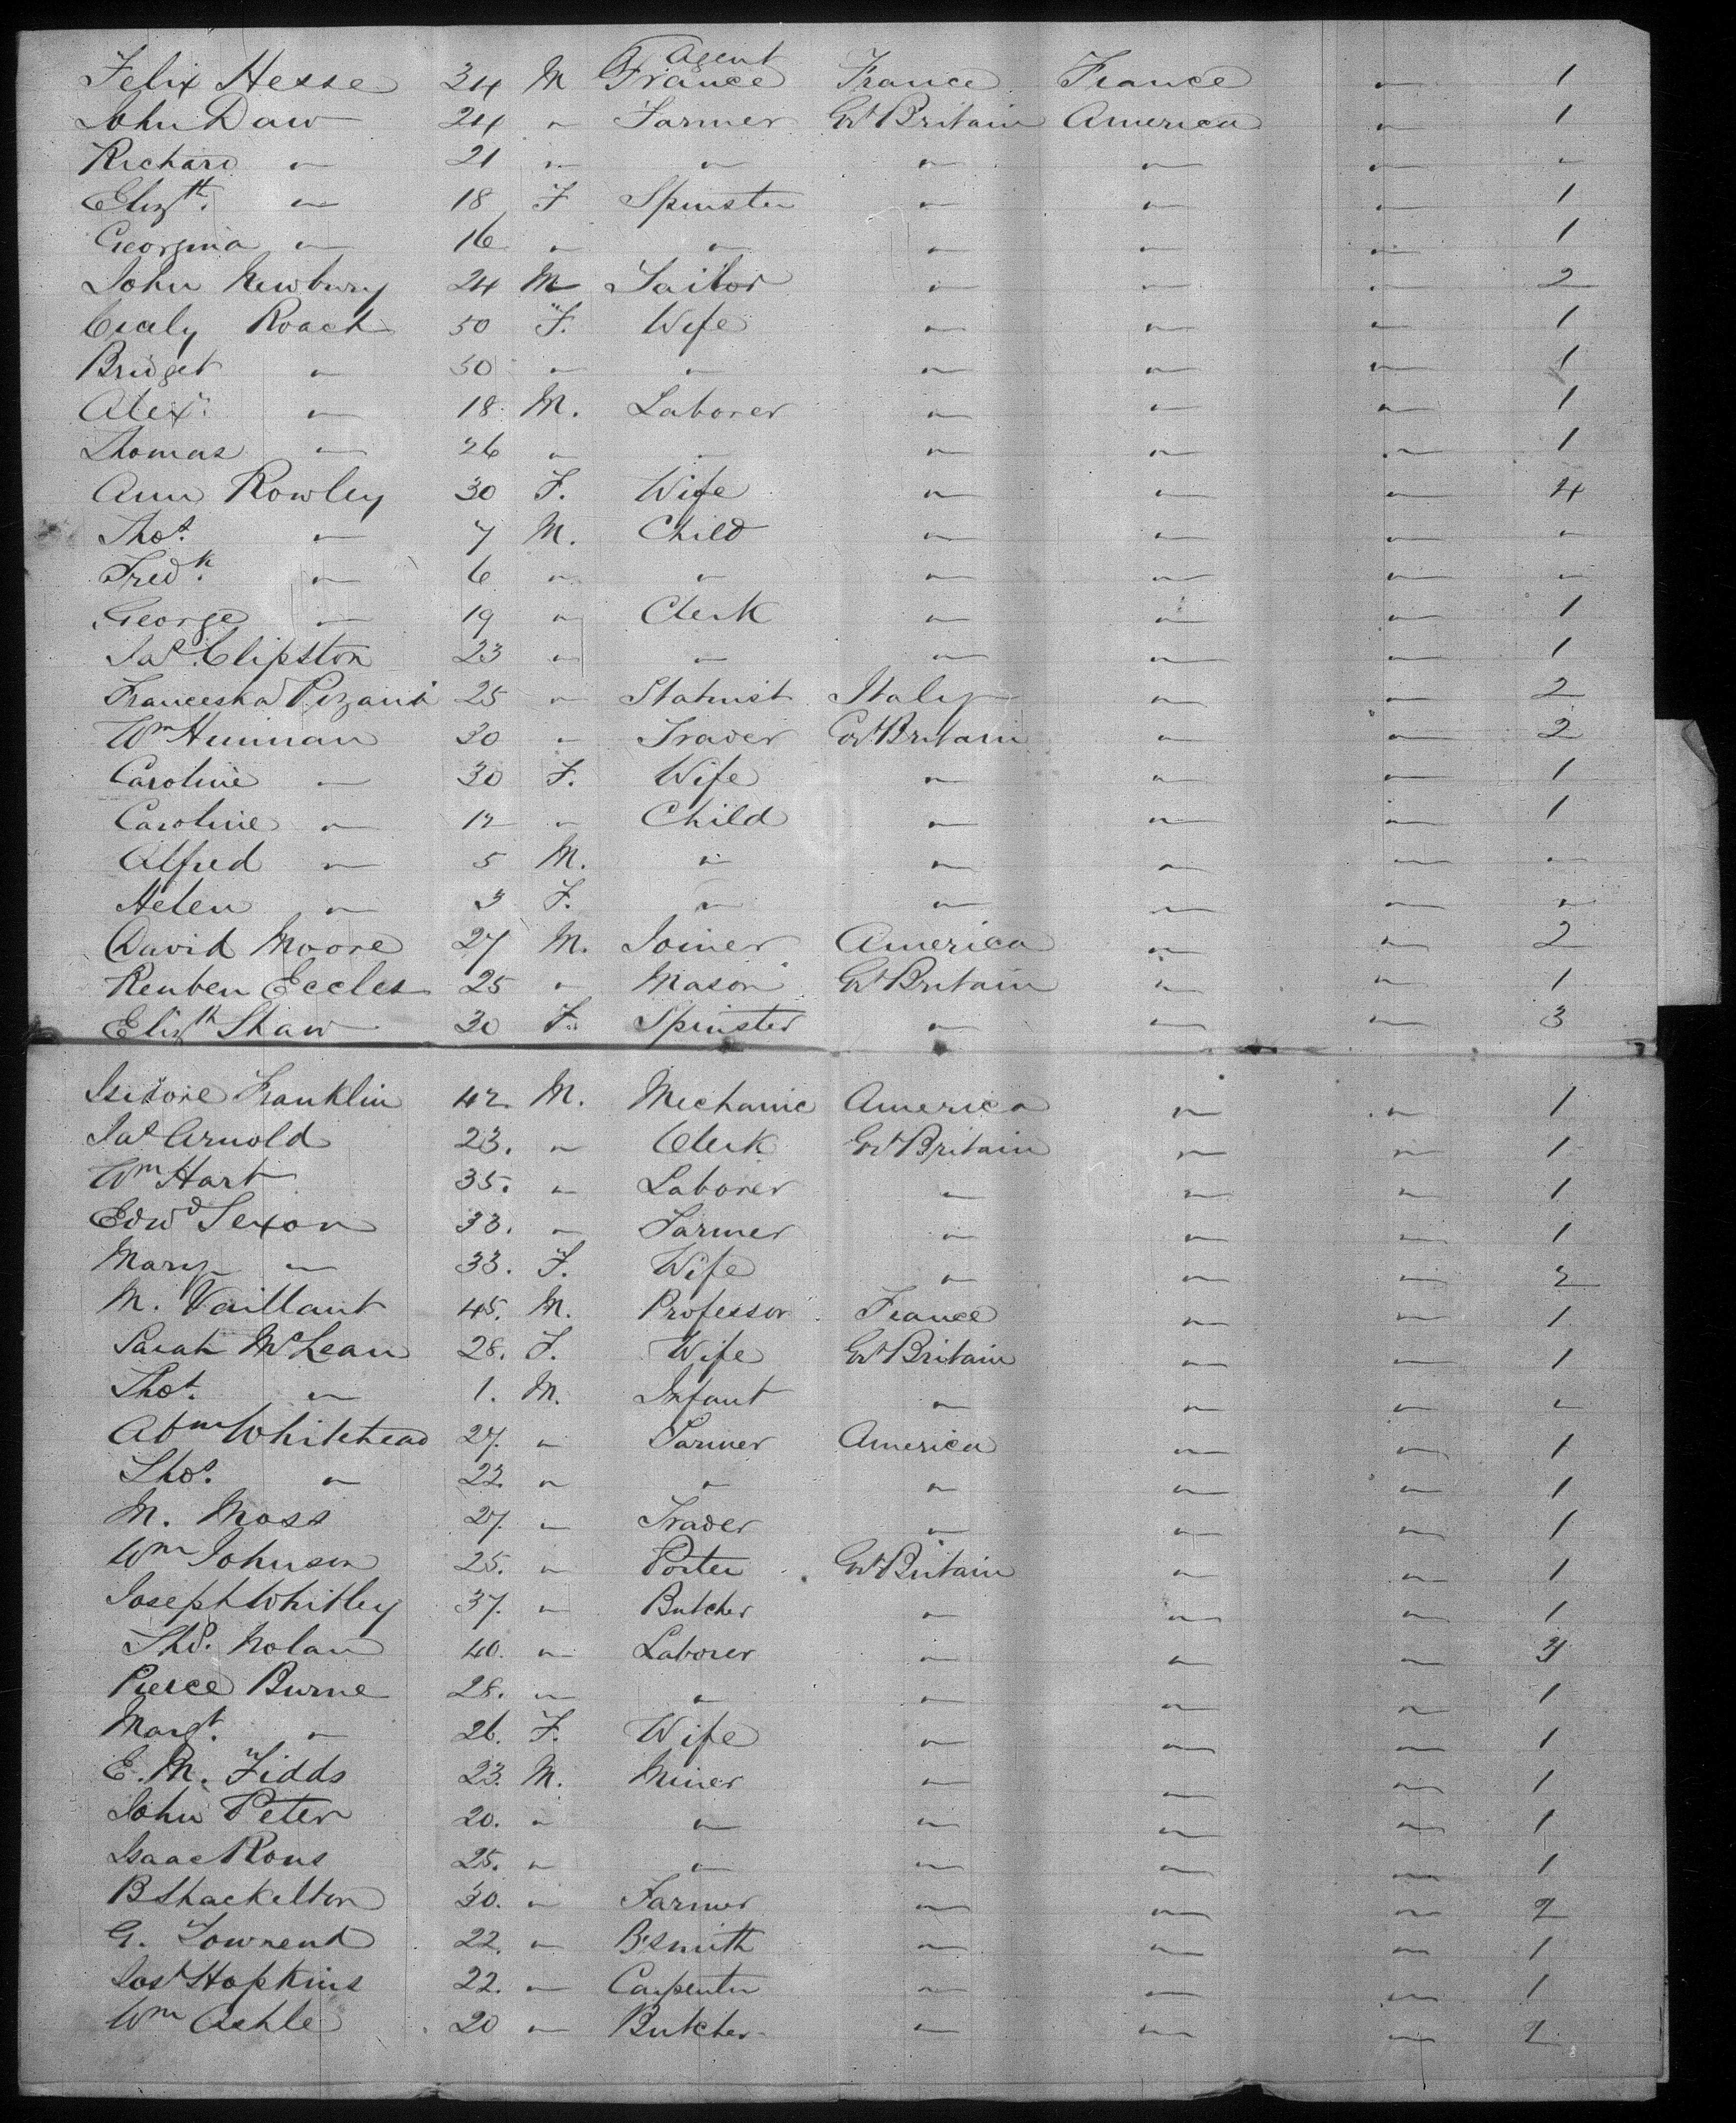 Agent
Felix Hesse 34 M France France France " 1
John Daw 24 " Farmer Gt Britain America " 1
Richard " 21 " " " " " "
Elizth. " 18 F Spinster " " " 1
Georgina " 16 " " " " " 1
John Newbury 24 M Tailor " " " 2
Cicely Roach 50 F. Wife " " " 1
Bridget " 50 " " " " " 1
Alexr. " 18. M. Laborer " " " 1
Thomas " 26 " " " " " 1
Ann Rowley 30 F. Wife " " " 4
Thos. " 7 M. Child " " " "
Fredk. " 6 " " " " " "
George " 19 " Clerk " " " 1
Jas. Clipston 23 " " " " " 1
Franceska Pizani 25 " Statuist Italy " " 2
Wm 30 " Trader Gt Britain " " 2
Caroline " 30 F. Wife " " " 1
Caroline " 12 " Child " " " 1
Alfred " 5 M. " " " " "
Helen " 3 F. " " " " "
David Moore 27 M. Joiner America " " 2
Reuben Eccles 25 " Mason Gt Britain " " 1
Elizth Shaw 30 F. Spinster " " " 3
Isidore Franklin 42. M. Mechanic America " " 1
Jas Arnold 23. " Clerk Gt Britain " " 1
Wm Hart 35. " Laborer " " " 1
Edwd Sexon 33. " Farmer " " " 1
Mary " 33. F. Wife " " " 2
M. Vaillant 45. M. Professor France " " 1
Sarah McLean 28. F. Wife Gt Britain " " 1
Thos. " 1. M. Infant " " " "
Abm Whitehead 27. " Farmer America " " 1
Thos. " 22. " " " " " 1
M. Moss 27. " Trader " " " 1
Wm Johnson 25. " Porter Gt Britain " " 1
Joseph Whitley 37. " Butcher " " " 1
Thos. Nolan 40. " Laborer " " " 3
Pierce Burne 28. " " " " " 1
Margt. " 26. F. Wife " " " 1
E. M. Fidds 23. M. Miner " " " 1
John Peter 20. " " " " " 1
Isaac Rous 25. " " " " " 1
B Shackelton 30. " Farmer " " " 2
G. Townend 22. " Bsmith " " " 1
Josh Hopkins 22. " Carpenter " " " 1
Wm Ashle 20 " Butcher " " " 2